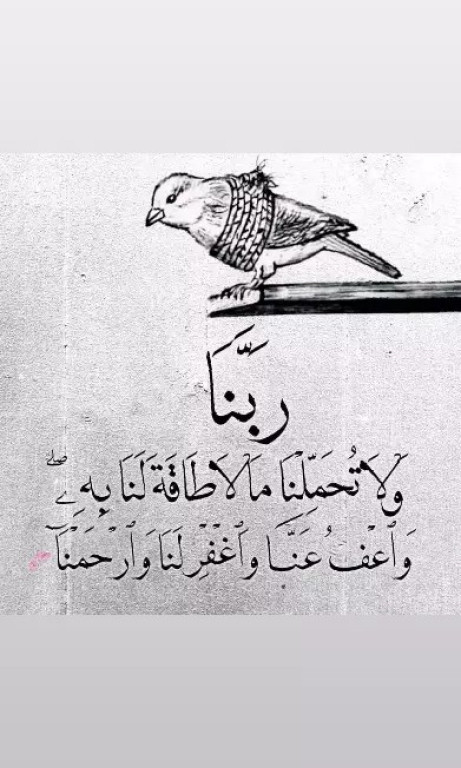 رَبَّنَا
وَلَا تُحَمِّلْنَا مَا لَا طَاقَةَ لَنَا بِهِۦ ۖ
وَٱعْفُ عَنَّا وَٱغْفِرْ لَنَا وَٱرْحَمْنَآ